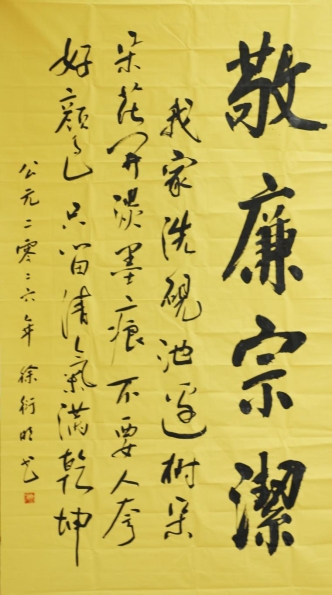 敬廉宗潔
我家洗硯池邊树朵
朵花開淡墨痕不要人夸
好顏色只留清氣滿乾坤
公元二零二六年 徐衍明书